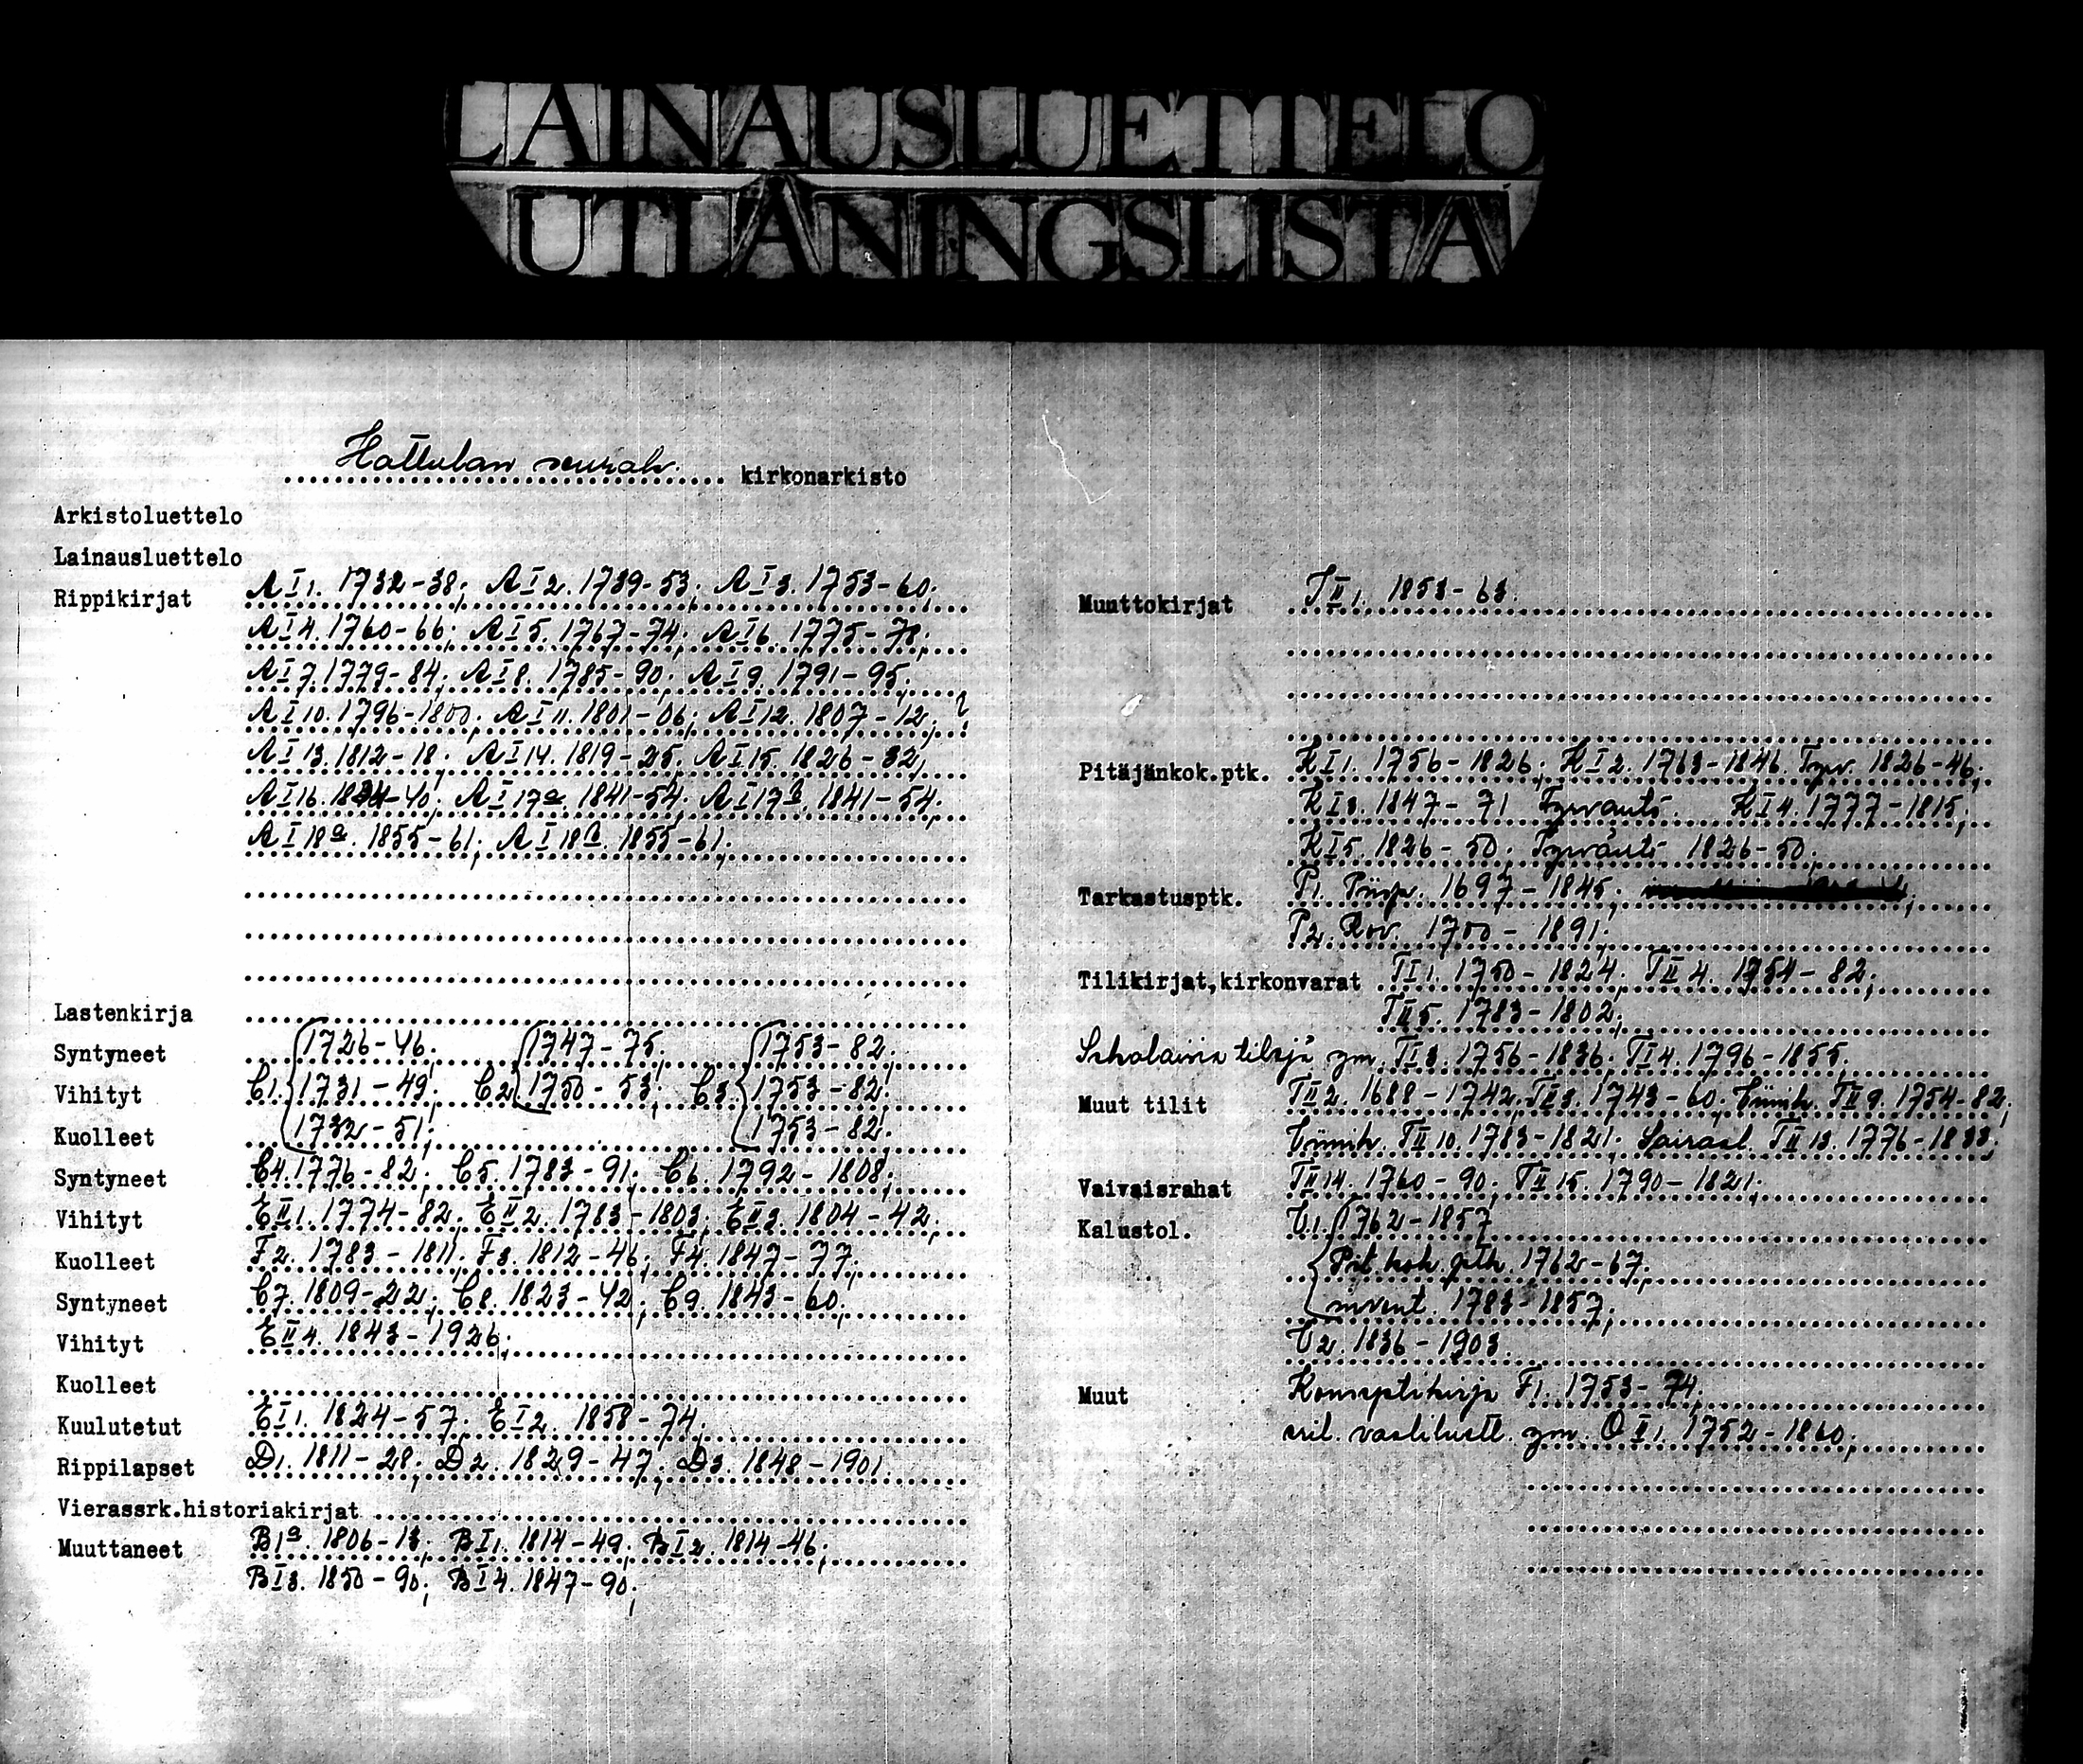 LAINAUSLUETTELO
UTLÅNINGSLISTA
Hattulan seurak. kirkonarkisto
Arkistoluettelo
Lainausluettelo
Rippikirjat A I 1. 1732-38; A I 2. 1739-53; A I 3. 1753-60;
A I 4. 1760-66; A I 5. 1767-74; A I 6. 1775-78;
A I 7. 1779-84; A I 8. 1785-90; A I 9. 1791-95;
A I 10. 1796-1800; A I 11. 1801-06; A I 12. 1807-12;
A I 13. 1812-18; A I 14. 1819-25; A I 15. 1826-32;
A I 16. 1834-40; A I 17a. 1841-54; A I 17b. 1841-54;
A I 18a. 1855-61; A I 18b. 1855-61;
Lastenkirja
Syntyneet 1726-46; 1747-75; 1753-82;
Vihityt C1. 1731-49; C2. 1750-53; C3. 1753-82;
Kuolleet 1732-51; 1753-82;
Syntyneet C4. 1776-82; C5. 1783-91; C6. 1792-1808;
Vihityt E II 1. 1774-82; E II 2. 1783-1803; E II 3. 1804-42;
Kuolleet F2. 1783-1811; F3. 1812-46; F4. 1847-77;
Syntyneet C7. 1809-22; C8. 1823-42; C9. 1843-60;
Vihityt E II 4. 1843-1926;
Kuolleet
Kuulutetut E I 1. 1824-57; E I 2. 1858-74;
Rippilapset D1. 1811-28; D2. 1829-47; D3. 1848-1901.
Vierassrk.historiakirjat
Muuttaneet B1a. 1806-13; B I 1. 1814-49; B I 2. 1814-46;
B I 3. 1850-90; B I 4. 1847-90;
Muuttokirjat 1853-63.
Pitäjänkok.ptk. K I 1. 1756-1826; K I 2. 1763-1846 Tyrv. 1826-46;
K I 3. 1847-71 Tyrväntö. K I 4. 1777-1815;
K I 5. 1826-50; Tyrväntö 1826-50;
Tarkastusptk. P1. Piisp. 1697-1845;
P2. Rov. 1700-1891;
Tilikirjat,kirkonvarat T I 1. 1750-1824; T II 4. 1754-82;
T II 5. 1783-1802;
tilejä ym. T I 3. 1756-1836; T I 4. 1796-1855.
Muut tilit T II 2. 1688-1742; T II 3. 1743-60; T II 9. 1754-82;
T II 10. 1783-1821; Sairaal. T II 13. 1776-1833;
Vaivaisrahat T II 14. 1760-90; T II 15. 1790-1821;
Kalustol. U1. 1762-1857
Pit.kok.ptk. 1762-67;
invent. 1783-1857;
U2. 1836-1903.
Muut Konseptikirja F1. 1753-74.
ym. O II 1. 1752-1860;